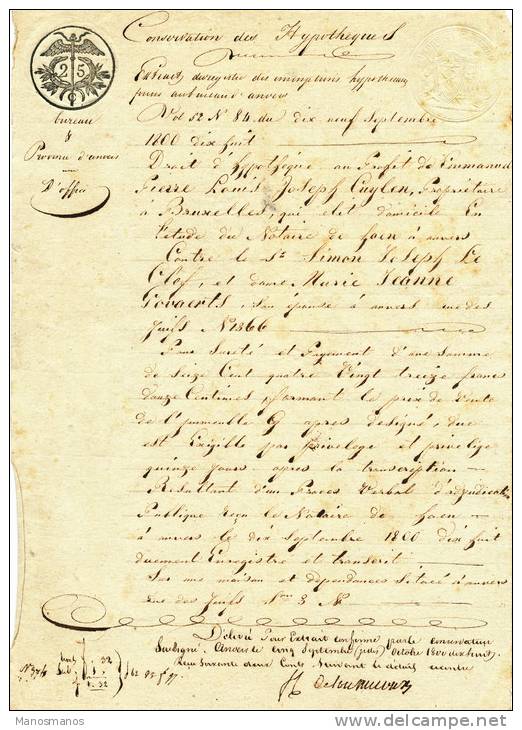 Conservation des Hypothèques
25
C
Extrait du registre des inscriptions hypothécaires
prises au bureau d'anvers
Vol 52 N° 84 du dix neuf Septembre
1800 dix huit
bureau
&
Province d'anvers
D'office
Droit d'hypothéque au Profit de Emmanuel
Pierre Louis Joseph Cuylen, Propriétaire
à Bruxelles, qui elit domicile En
l'étude du Notaire de à anvers
Contre le Sr Simon Joseph Le
Clef, et dame Marie Jeanne
Govaerts, Son épouse à anvers rue des
Juifs N° 1366
Pour Sureté et Payement d'une Somme
de Seize Cent quatre Vingt treize francs
douze Centimes, formant le prix de Vente
de l'immeuble apres designé, due
est Exigible par privilege et privilege
quinze Jours apres la transcription
Résultant d'un Procès Verbal d'adjudication
Publique reçu le Notaire de
à anvers le dix Septembre 1800 dix huit
duement Enregistré et transcrit
Sur une maison et dépendances Situee à anvers
rue des Juifs Son 3 N°
Délivré Pour Extrait conforme par le conservateur
Soussigné. Anvers le cinq Octobre 1800 dix huit.
Reçu Soixante deux Cents Suivant le détail
N° 374
1. 32
62
Manosmanos
delcampe.net